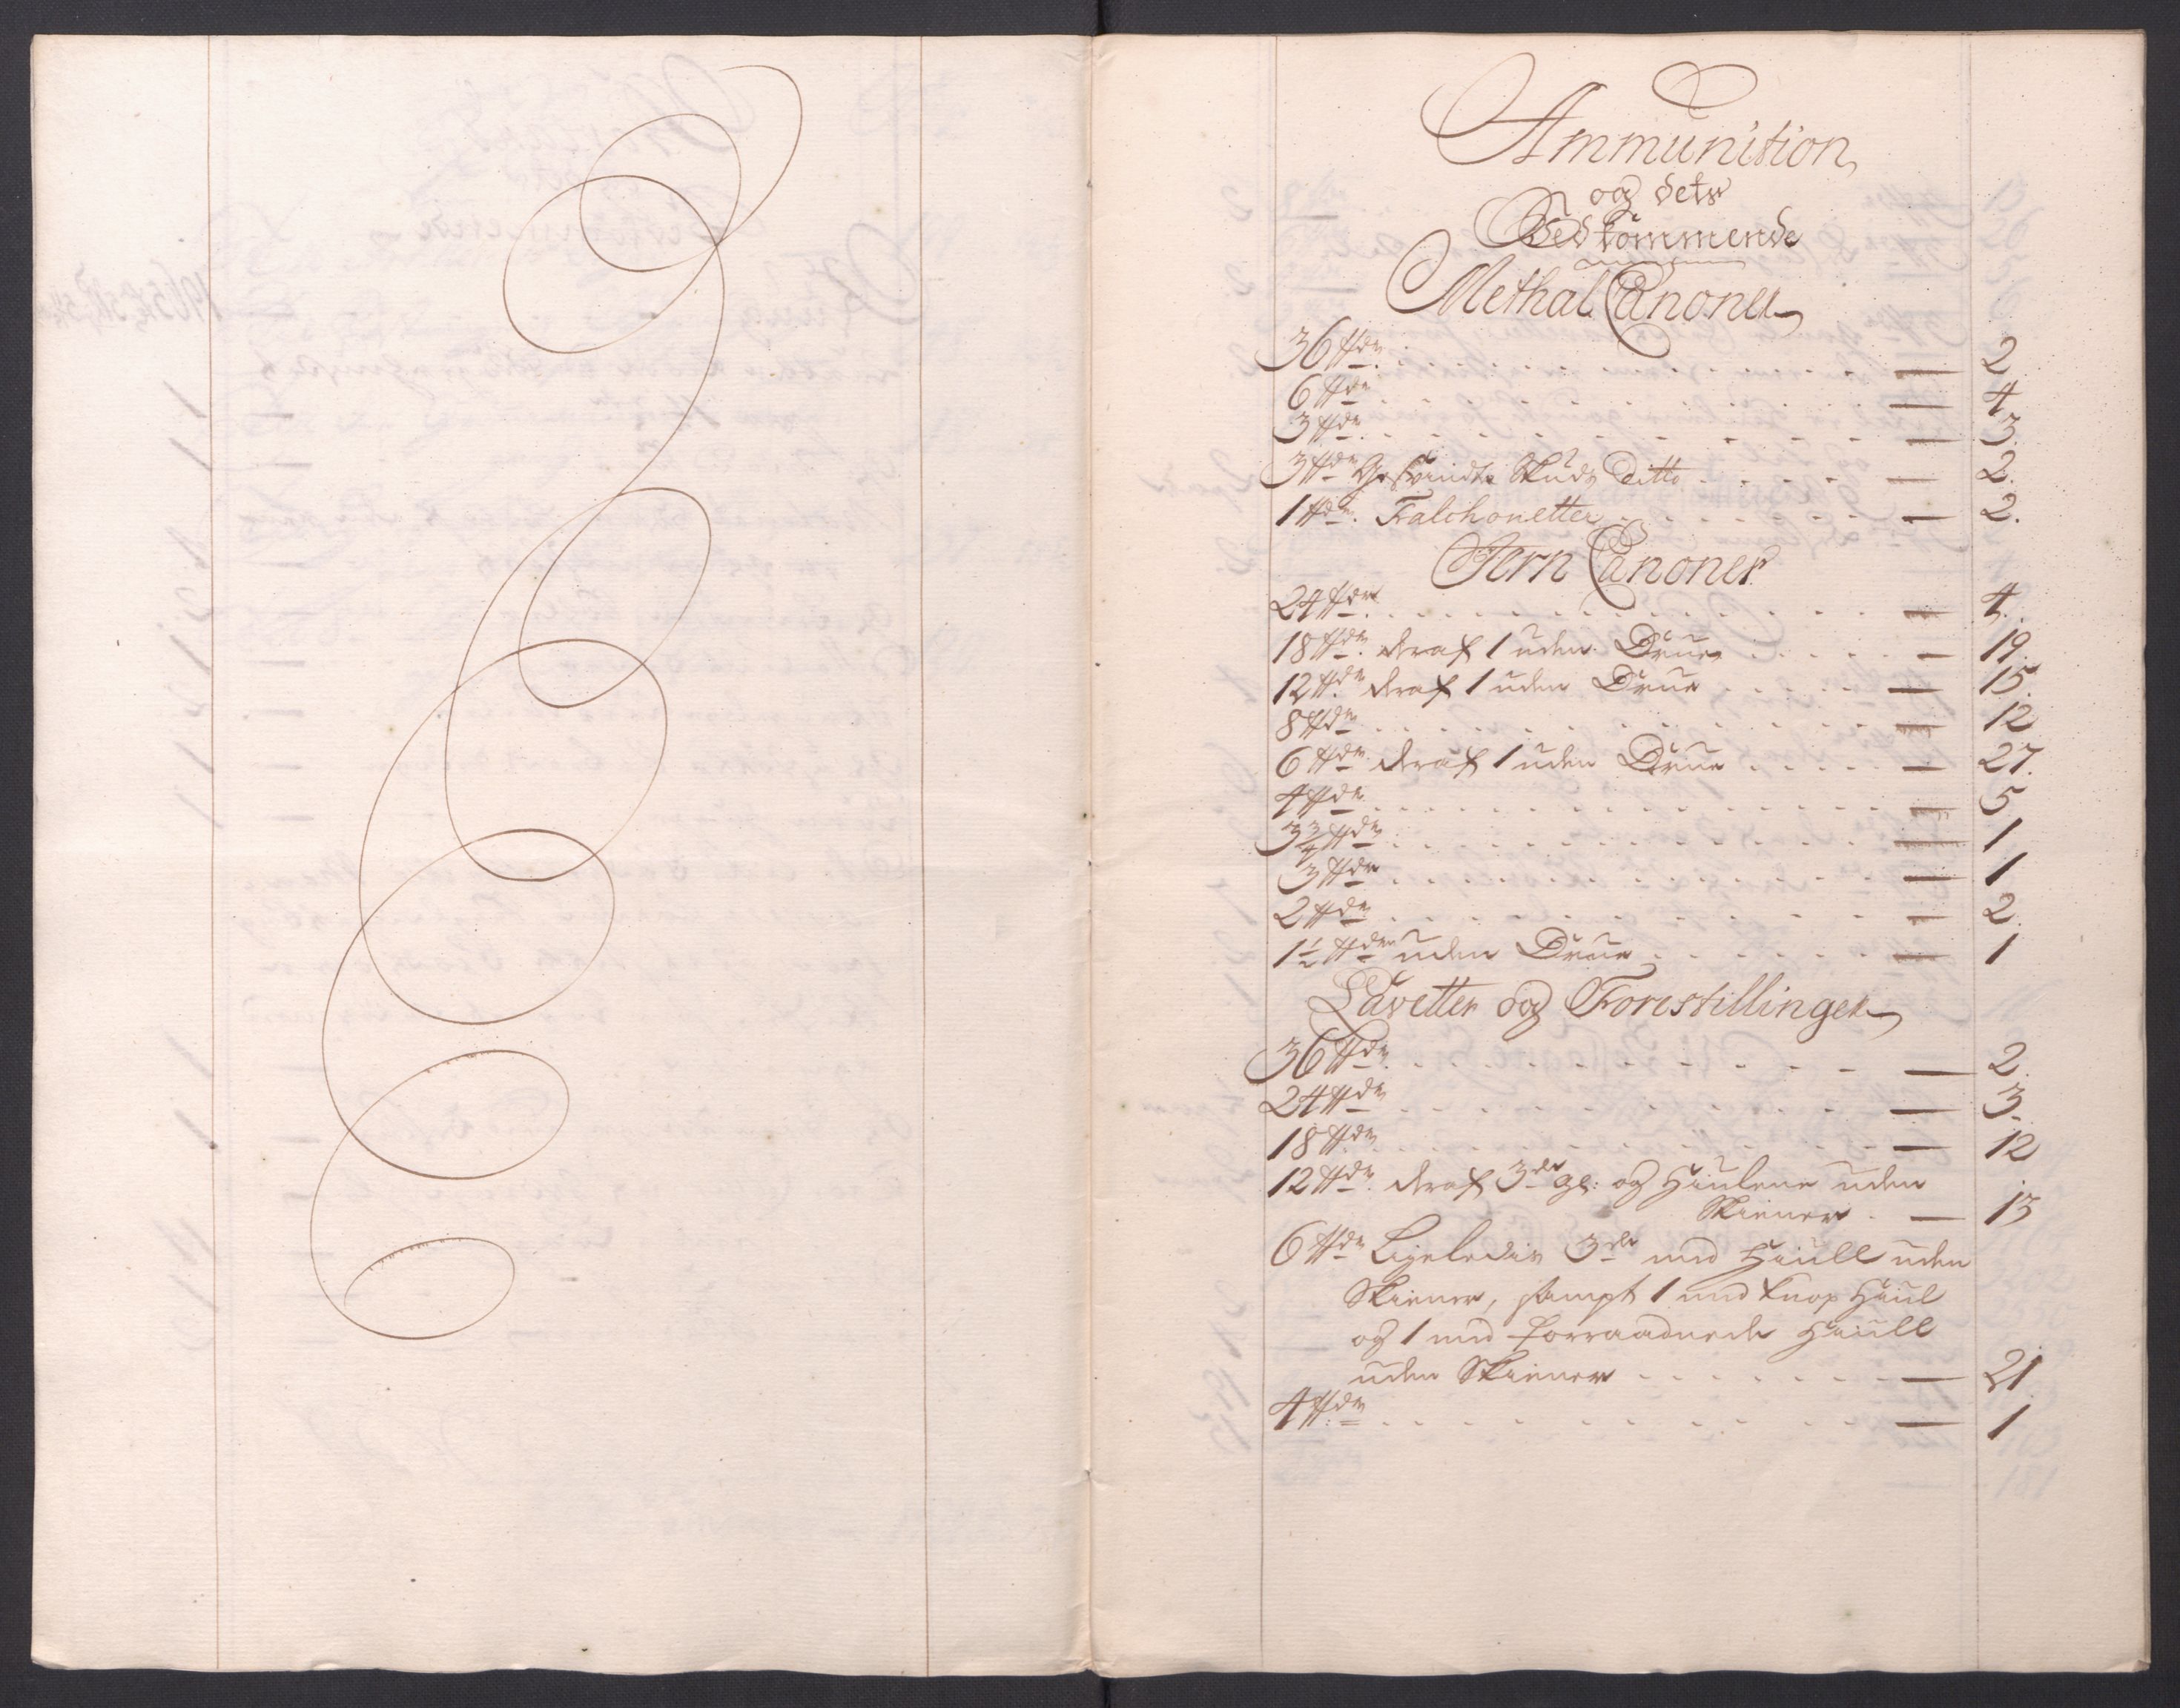 Ammunition
og dets
Vedkommende
Methal Canoner
36 ℔dr. 2
6 ℔dr 4
3 ℔dr 3.
3 ℔dr Geschvindt Skuds Ditto 2.
1 ℔dr. Falchonetter 2.
Jern Canoner
24 ℔dr. 4.
18 ℔dr. deraf 1 uden Drue 19.
12 ℔dr. deraf 1 uden Drue 15.
8 ℔dr 12
6 ℔dr deraf 1 uden Drue 27.
4 ℔dr 5
3¾ ℔dr 1
3 ℔dr 1
2 ℔dr 2.
1½ ℔dr uden Drue 1
Lavetter og Forestillinger
36 ℔dr. 2.
24 ℔dr 3.
18 ℔dr 12
12 ℔dr. deraf 3de gl: og Hiulene uden
Skinner. 13
6 ℔dr Ligeledis 3de med Hiull uden
Skinner, sampt 1 med Knop Hiul
og 1 med forraadnede Hiull
uden Skinner 21.
4 ℔dr 1